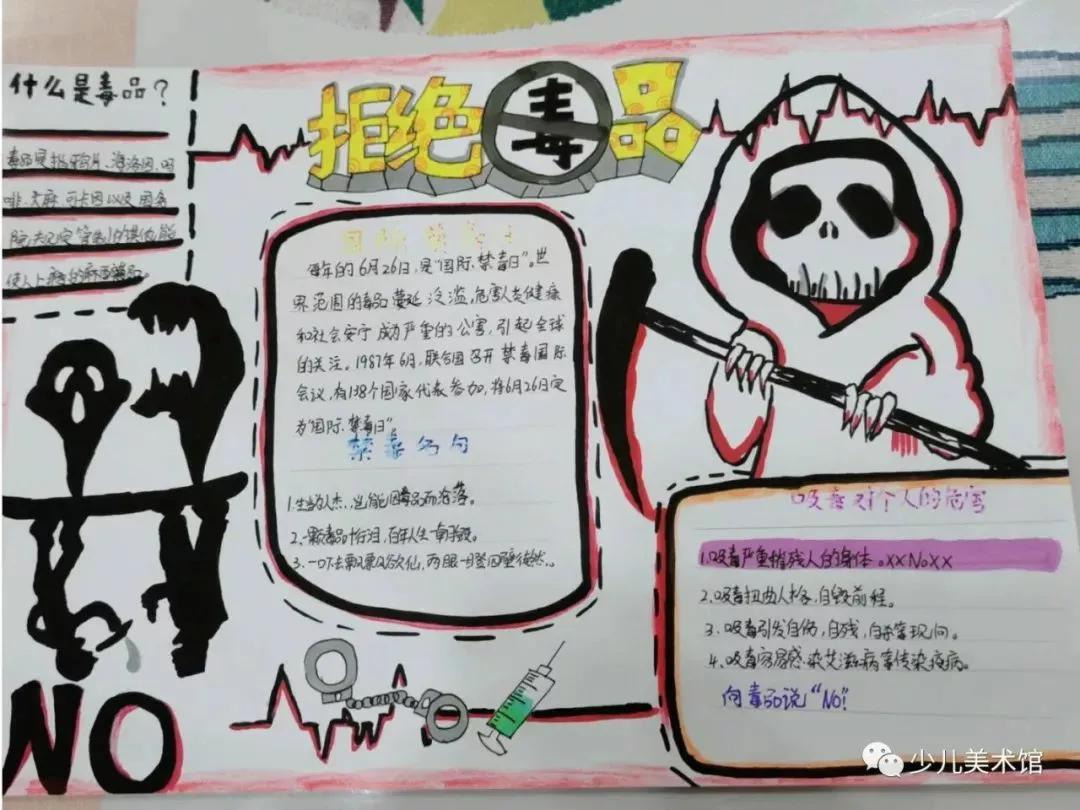 什么是毒品？
毒品是指鸦片、海洛因、吗
啡、大麻、可卡因以及国务
院规定管制的其他能
使人上瘾的麻醉药品。
拒绝毒品
国际禁毒日
每年的6月26日，是“国际禁毒日”。世
界范围的毒品蔓延泛滥，危害人类健康
和社会安宁成为严重的公害，引起全球
的关注。1987年6月，联合国召开禁毒国际
会议，有138个国家代表参加，将6月26日定
为“国际禁毒日”。
禁毒名句
1.生当人杰，岂能因毒品而沦落。
2.一颗毒品一行泪，百年人生一南
3.一口下去飘飘欲仙，两眼一瞪
吸毒对个人的危害
1.吸毒严重摧残人的身体。XXNOXX
2.吸毒扭曲人格，自毁前程。
3.吸毒引发自伤，自残，自杀等现问。
4.吸毒容易感染艾滋病等传染疫病。
向毒品说“NO！”
NO
少儿美术馆